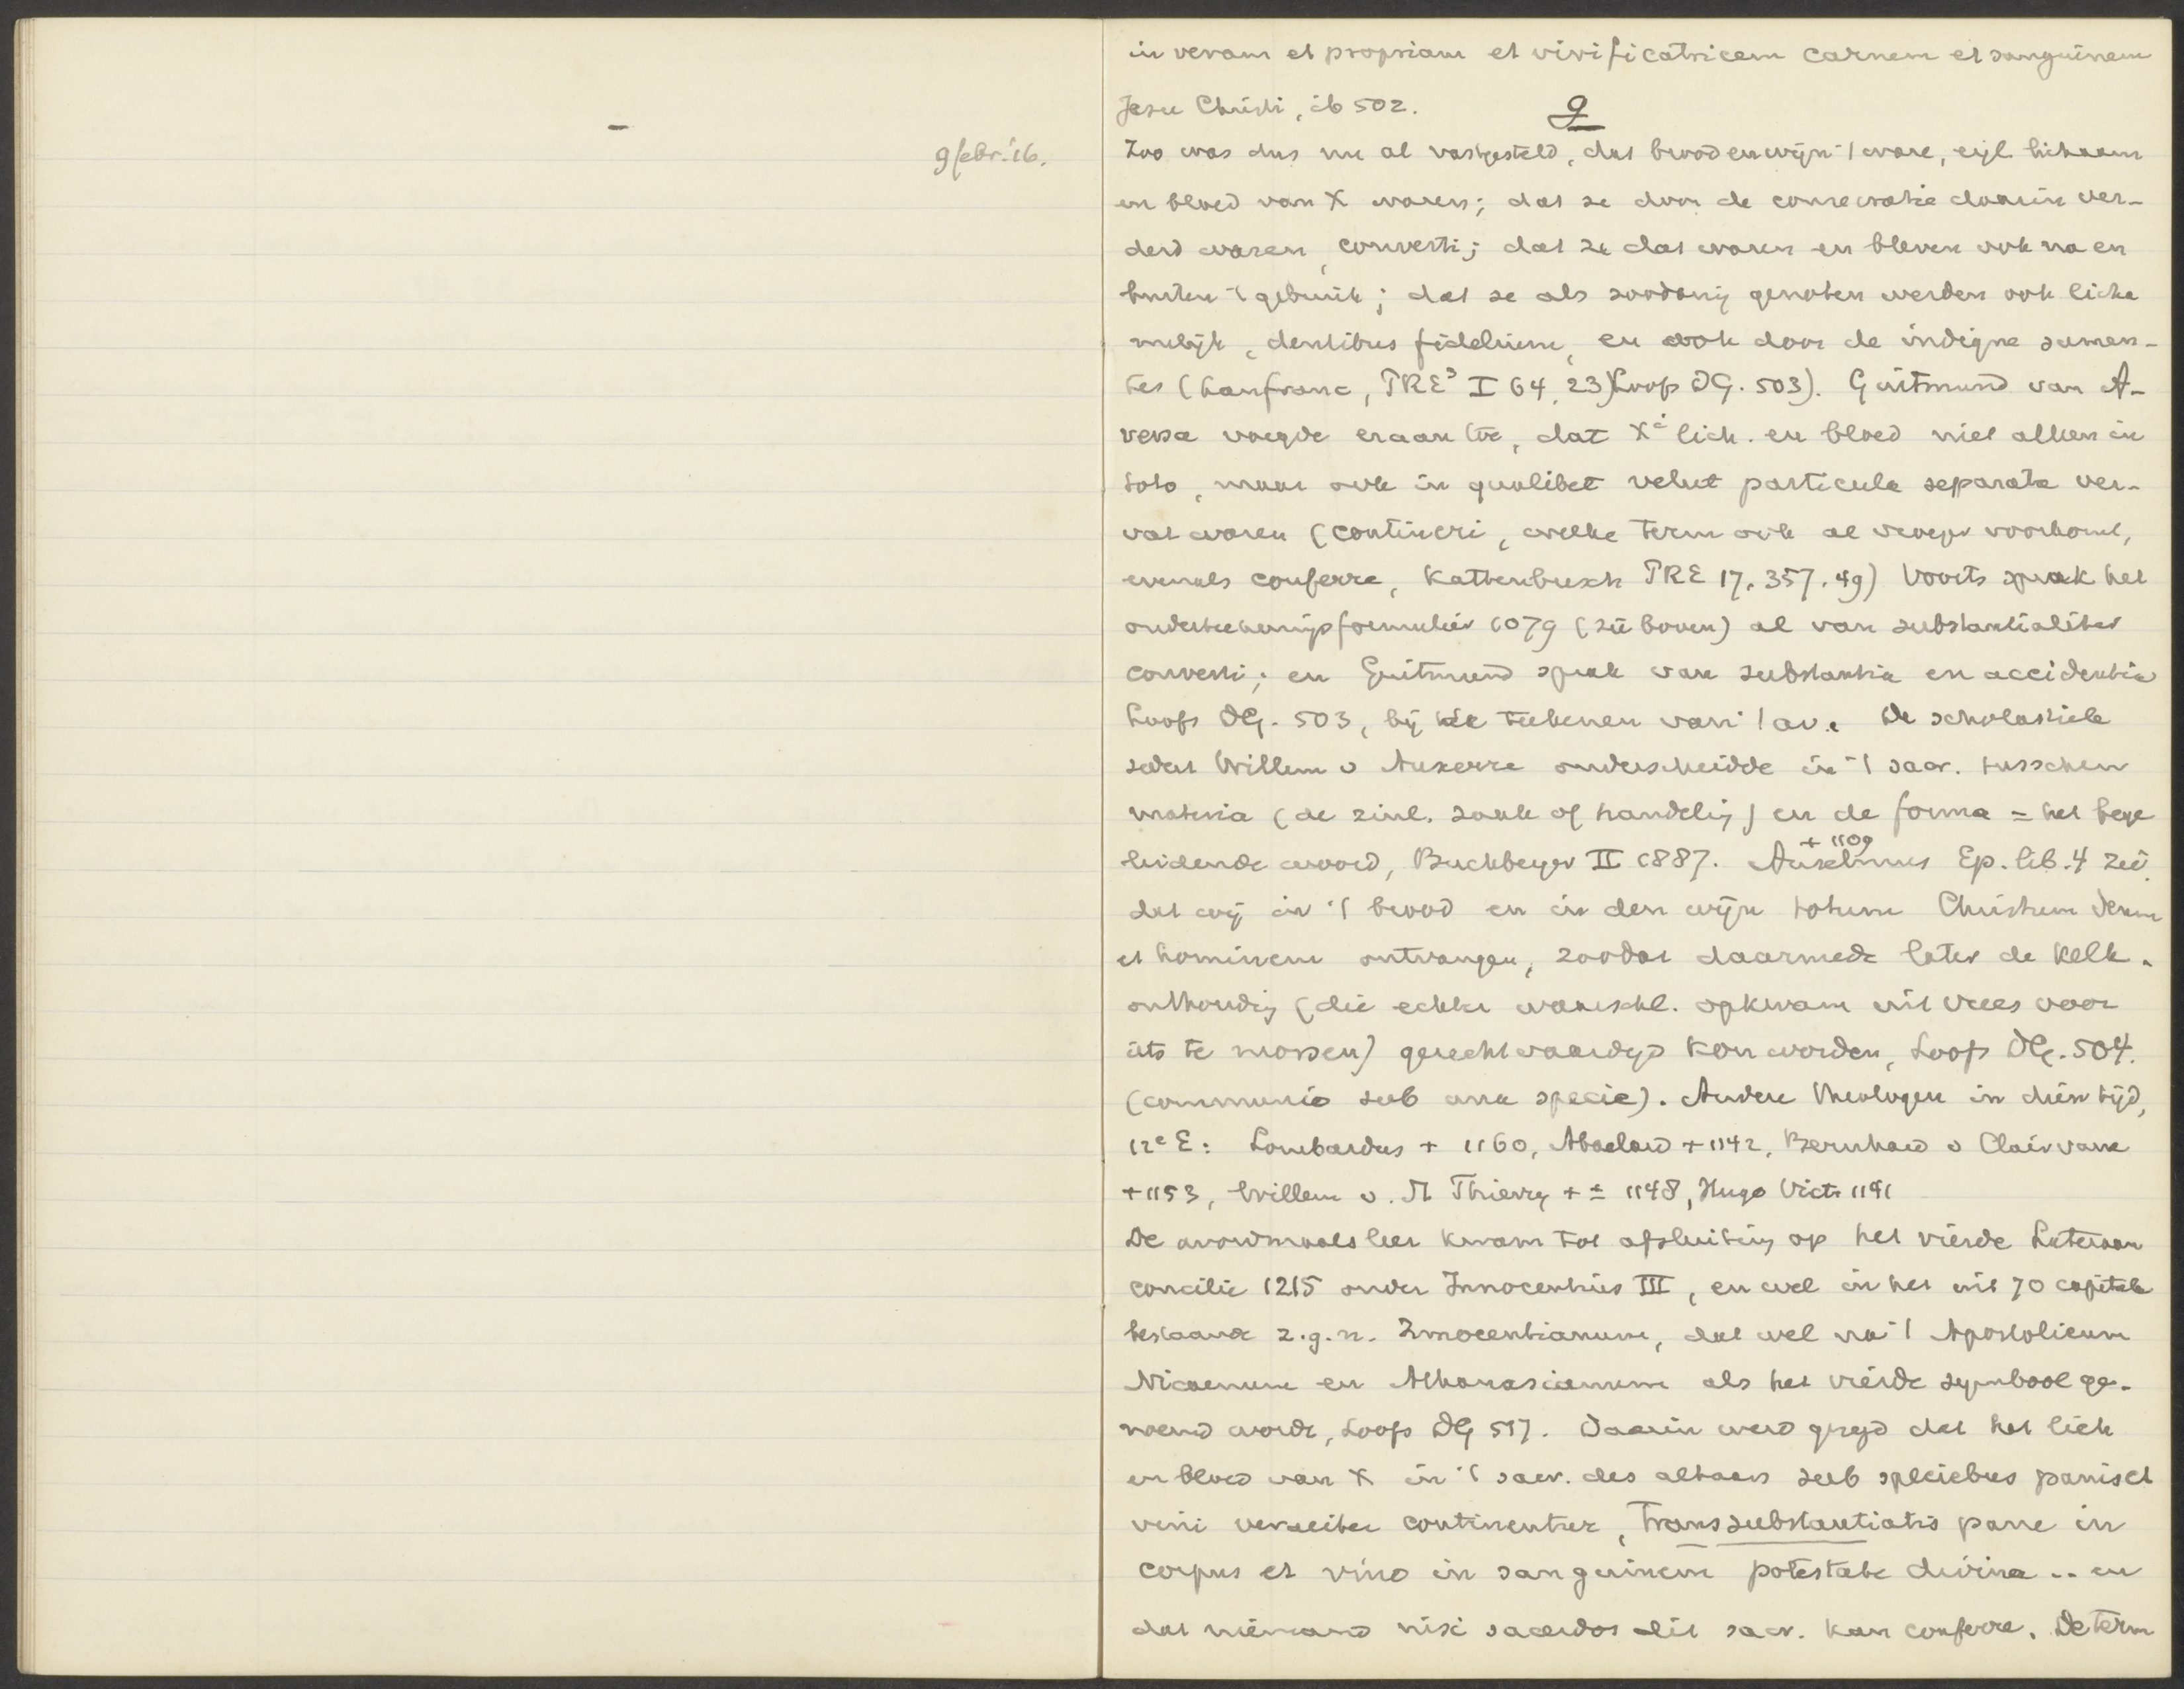 9 febr. '16.
in veram et propriam et vivificatricem carnem et sanguinem
Jesu Christi, ib 502.
9
Zoo was dus nu al vastgesteld, dat brood en wijn 't ware, eigl. lichaam
en bloed van X waren; dat ze door de consecratie daarin ver-
derd waren, converti; dat ze dat waren en bleven ook na en
buiten 't gebruik; dat ze als zoodanig genoten werden ook licha
melijk, dentibus fidelium, en ook door de indigne sumen-
tes (Lanfranc, PRE³ I 64, 23) Loofs DG. 503). Guitmund van A-
versa voegde eraan toe, dat Xi lich. en bloed niet alleen in
toto, maar ook in qualibet velut particula separata ver-
vat waren (contineri, welke term ook al vroeger voorkomt,
evenals conferre, Kattenbusch PRE 17, 357, 49) Voorts sprak het
onderteekeningsformulier 1079 (zie boven) al van substantialiter
converti; en Guitmund sprak van substantia en accidentia
Loofs DG. 503, bij de teekenen van 't av. De scholastiek
sedert Willem v Auxerre onderscheidde in 't sacr. tusschen
materia (de zinl. zaak of handeling) en de forma = het bege
leidende woord, Buchberger II 1887. Anselmus + 1109 Ep. lib. 4 zei
dat wij in 't brood en in den wijn totum Christum Deum
et hominem ontvangen, zoodat daarmede later de kelk-
onthouding (die echter waarschl. opkwam uit vrees voor
iets te morsen) gerechtvaardigd kon worden, Loofs DG. 504.
(communio sub una specie). Andere theologen in dien tijd,
12e E: Lombardus + 1160, Abaelard + 1142, Bernhard v Clairvaux
+ 1153, Willem v. St Thierry + ± 1148, Hugo Vict. 1141
De avondmaalsleer kwam tot afsluiting op het vierde Lateraan
concilie 1215 onder Innocentius III, en wel in het uit 70 capitula
bestaande z.g.n. Innocentianum, dat wel na 't Apostolicum
Nicaenum en Athanasianum als het vierde symbool ge-
noemd wordt, Loofs DG 517. Daarin werd gezegd dat het lich
en bloed van X in 't sacr. des altaars sub speciebus panis et
vini veraciter continentur, transsubstantiatis pane in
corpus et vino in sanguinem potestate divina .. en
dat niemand nisi sacerdos dit sacr. kan conferre. De term